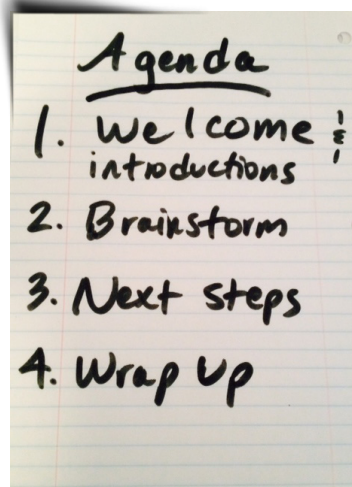 Agenda
1. Welcome &
introductions
2. Brainstorm
3. Next steps
4. Wrap up